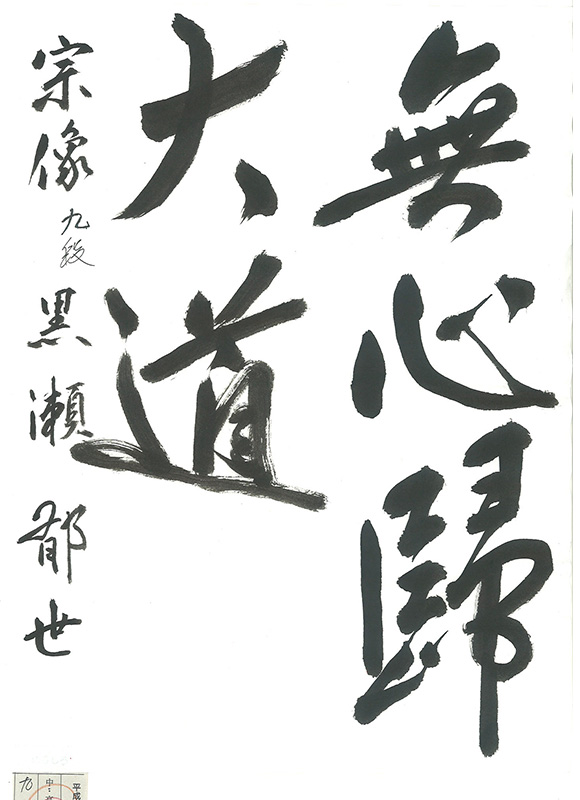 無心歸
大道
宗像 九段 黒瀬郁世
平成
中・高
九